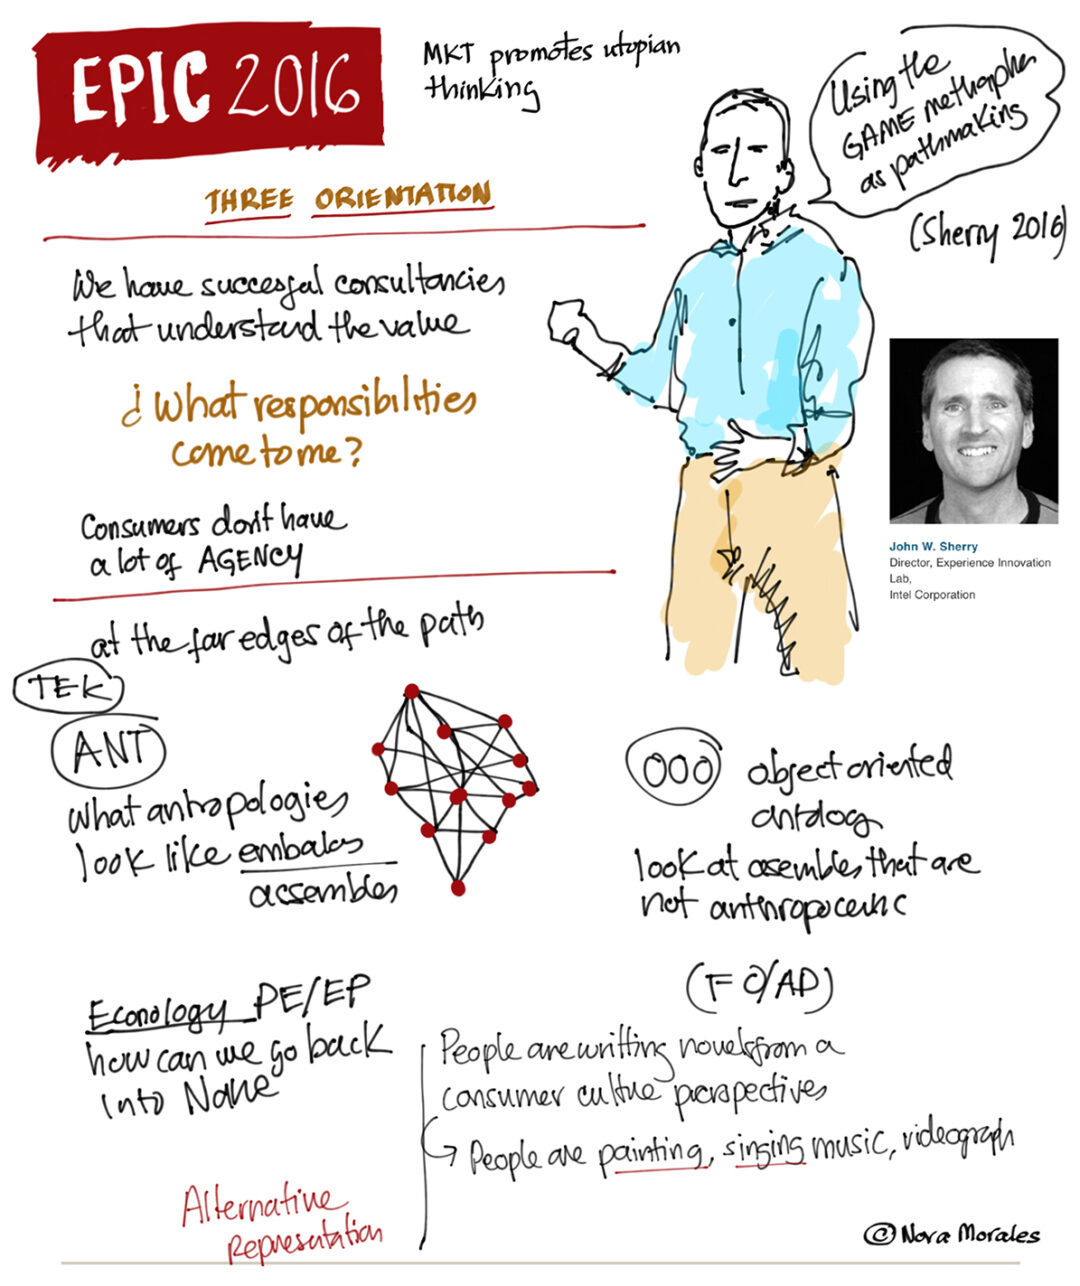 EPIC 2016
MKT promotes utopian
thinking
Using the
GAME methapher
as pathmaking
(Sherry 2016)
THREE ORIENTATION
We have succesful consultancies
that understand the value
¿What responsibilities
come to me?
Consumers don't have
a lot of AGENCY
John W. Sherry
Director, Experience Innovation
Lab,
Intel Corporation
at the far edges of the path
TEK
ANT
what antropologies
look like embalas
assembles
OOO object oriented
antology
look at asembles that are
not anthropocentric
Econology PE/EP
how can we go back
into
(F O/AD)
People are writting novels from a
consumer cultue perspectives
People are painting, singing music, videograph
Alternative
Representation
© Nora Morales